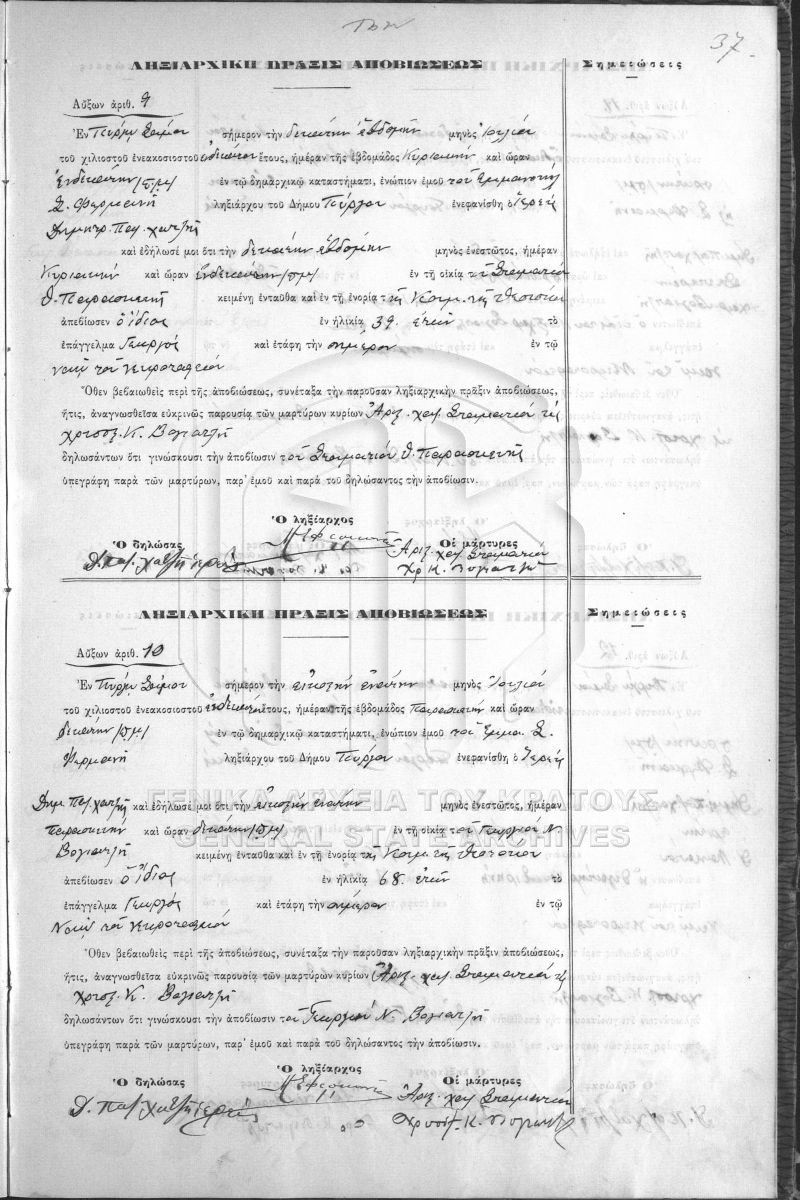 37
ΛΗΞΙΑΡΧΙΚΗ ΠΡΑΞΙΣ ΑΠΟΒΙΩΣΕΩΣ
Σημειώσεις
Αὔξων ἀριθ. 9
Ἐν Πύργῳ Σάμου σήμερον τὴν δεκάτην ἑβδόμην μηνὸς Ἰουλίου
τοῦ χιλιοστοῦ ἐνεακοσιοστοῦ ἑνδεκάτου ἔτους, ἡμέραν τῆς ἑβδομάδος Κυριακὴν καὶ ὥραν
ἑνδεκάτην /π.μ/ ἐν τῷ δημαρχικῷ καταστήματι, ἐνώπιον ἐμοῦ τοῦ Ἐμμανουὴλ
Σ. ληξιάρχου τοῦ Δήμου Πύργου ἐνεφανίσθη ὁ Ἱερεὺς
Δημητρ. Παπ. χατζῆς
καὶ ἐδήλωσέ μοι ὅτι τὴν δεκάτην ἑβδόμην μηνὸς ἐνεστῶτος, ἡμέραν
Κυριακὴν καὶ ὥραν ἑνδεκάτην /πμ/ ἐν τῇ οἰκίᾳ τοῦ Σταματίου
Θ. Παρασκευῆ κειμένῃ ἐνταῦθα καὶ ἐν τῇ ἐνορίᾳ τῆς Κοιμ. τῆς Θεοτόκου
ἀπεβίωσεν ὁ ἴδιος ἐν ἡλικίᾳ 39. ἐτῶν τὸ
ἐπάγγελμα Γεωργός καὶ ἐτάφη τὴν σήμερον ἐν τῷ
Ναῷ τοῦ Νεκροταφείου
Ὅθεν βεβαιωθεὶς περὶ τῆς ἀποβιώσεως, συνέταξα τὴν παροῦσαν ληξιαρχικὴν πρᾶξιν ἀποβιώσεως,
ἥτις, ἀναγνωσθεῖσα εὐκρινῶς παρουσίᾳ τῶν μαρτύρων κυρίων Ἀρχ. χατζ Σταματίου
Χριστ. Κ. Βογιατζῆ
δηλωσάντων ὅτι γινώσκουσι τὴν ἀποβίωσιν τοῦ Σταματίου Θ. Παρασκευῆ
ὑπεγράφη παρὰ τῶν μαρτύρων, παρ' ἐμοῦ καὶ παρὰ τοῦ δηλώσαντος τὴν ἀποβίωσιν.
Ὁ δηλώσας Ὁ ληξίαρχος Οἱ μάρτυρες
Δ. Παπ. χατζῆ ἱερεὺς
ΛΗΞΙΑΡΧΙΚΗ ΠΡΑΞΙΣ ΑΠΟΒΙΩΣΕΩΣ
Σημειώσεις
Αὔξων ἀριθ. 10
Ἐν Πύργῳ Σάμου σήμερον τὴν εἰκοστὴν ἐνάτην μηνὸς Ἰουλίου
τοῦ χιλιοστοῦ ἐνεακοσιοστοῦ ἑνδεκάτου ἔτους, ἡμέραν τῆς ἑβδομάδος Παρασκευὴν καὶ ὥραν
δεκάτην /πμ/ ἐν τῷ δημαρχικῷ καταστήματι, ἐνώπιον ἐμοῦ τοῦ Ἐμμα. Σ.
ληξιάρχου τοῦ Δήμου Πύργου ἐνεφανίσθη ὁ Ἱερεὺς
Δημ Παπ. χατζῆς καὶ ἐδήλωσέ μοι ὅτι τὴν εἰκοστὴν ἐνάτην μηνὸς ἐνεστῶτος, ἡμέραν
Παρασκευὴν καὶ ὥραν δεκάτην /πμ/ ἐν τῇ οἰκίᾳ τοῦ Γεωργίου Ν.
Βογιατζῆ κειμένῃ ἐνταῦθα καὶ ἐν τῇ ἐνορίᾳ τῆς Κοιμ. τῆς Θεοτόκου
ἀπεβίωσεν ὁ ἴδιος ἐν ἡλικίᾳ 68. ἐτῶν τὸ
ἐπάγγελμα Γεωργός καὶ ἐτάφη τὴν σήμερον ἐν τῷ
Ναῷ τοῦ Νεκροταφείου
Ὅθεν βεβαιωθεὶς περὶ τῆς ἀποβιώσεως, συνέταξα τὴν παροῦσαν ληξιαρχικὴν πρᾶξιν ἀποβιώσεως,
ἥτις, ἀναγνωσθεῖσα εὐκρινῶς παρουσίᾳ τῶν μαρτύρων κυρίων Ἀρχ. χατζ Σταματίου
Χριστ. Κ. Βογιατζῆ
δηλωσάντων ὅτι γινώσκουσι τὴν ἀποβίωσιν τοῦ Γεωργίου Ν. Βογιατζῆ
ὑπεγράφη παρὰ τῶν μαρτύρων, παρ' ἐμοῦ καὶ παρὰ τοῦ δηλώσαντος τὴν ἀποβίωσιν.
Ὁ δηλώσας Ὁ ληξίαρχος Οἱ μάρτυρες
Δ. Παπ. χατζῆ ἱερεὺς
ΓΕΝΙΚΑ ΑΡΧΕΙΑ ΤΟΥ ΚΡΑΤΟΥΣ
GENERAL STATE ARCHIVES